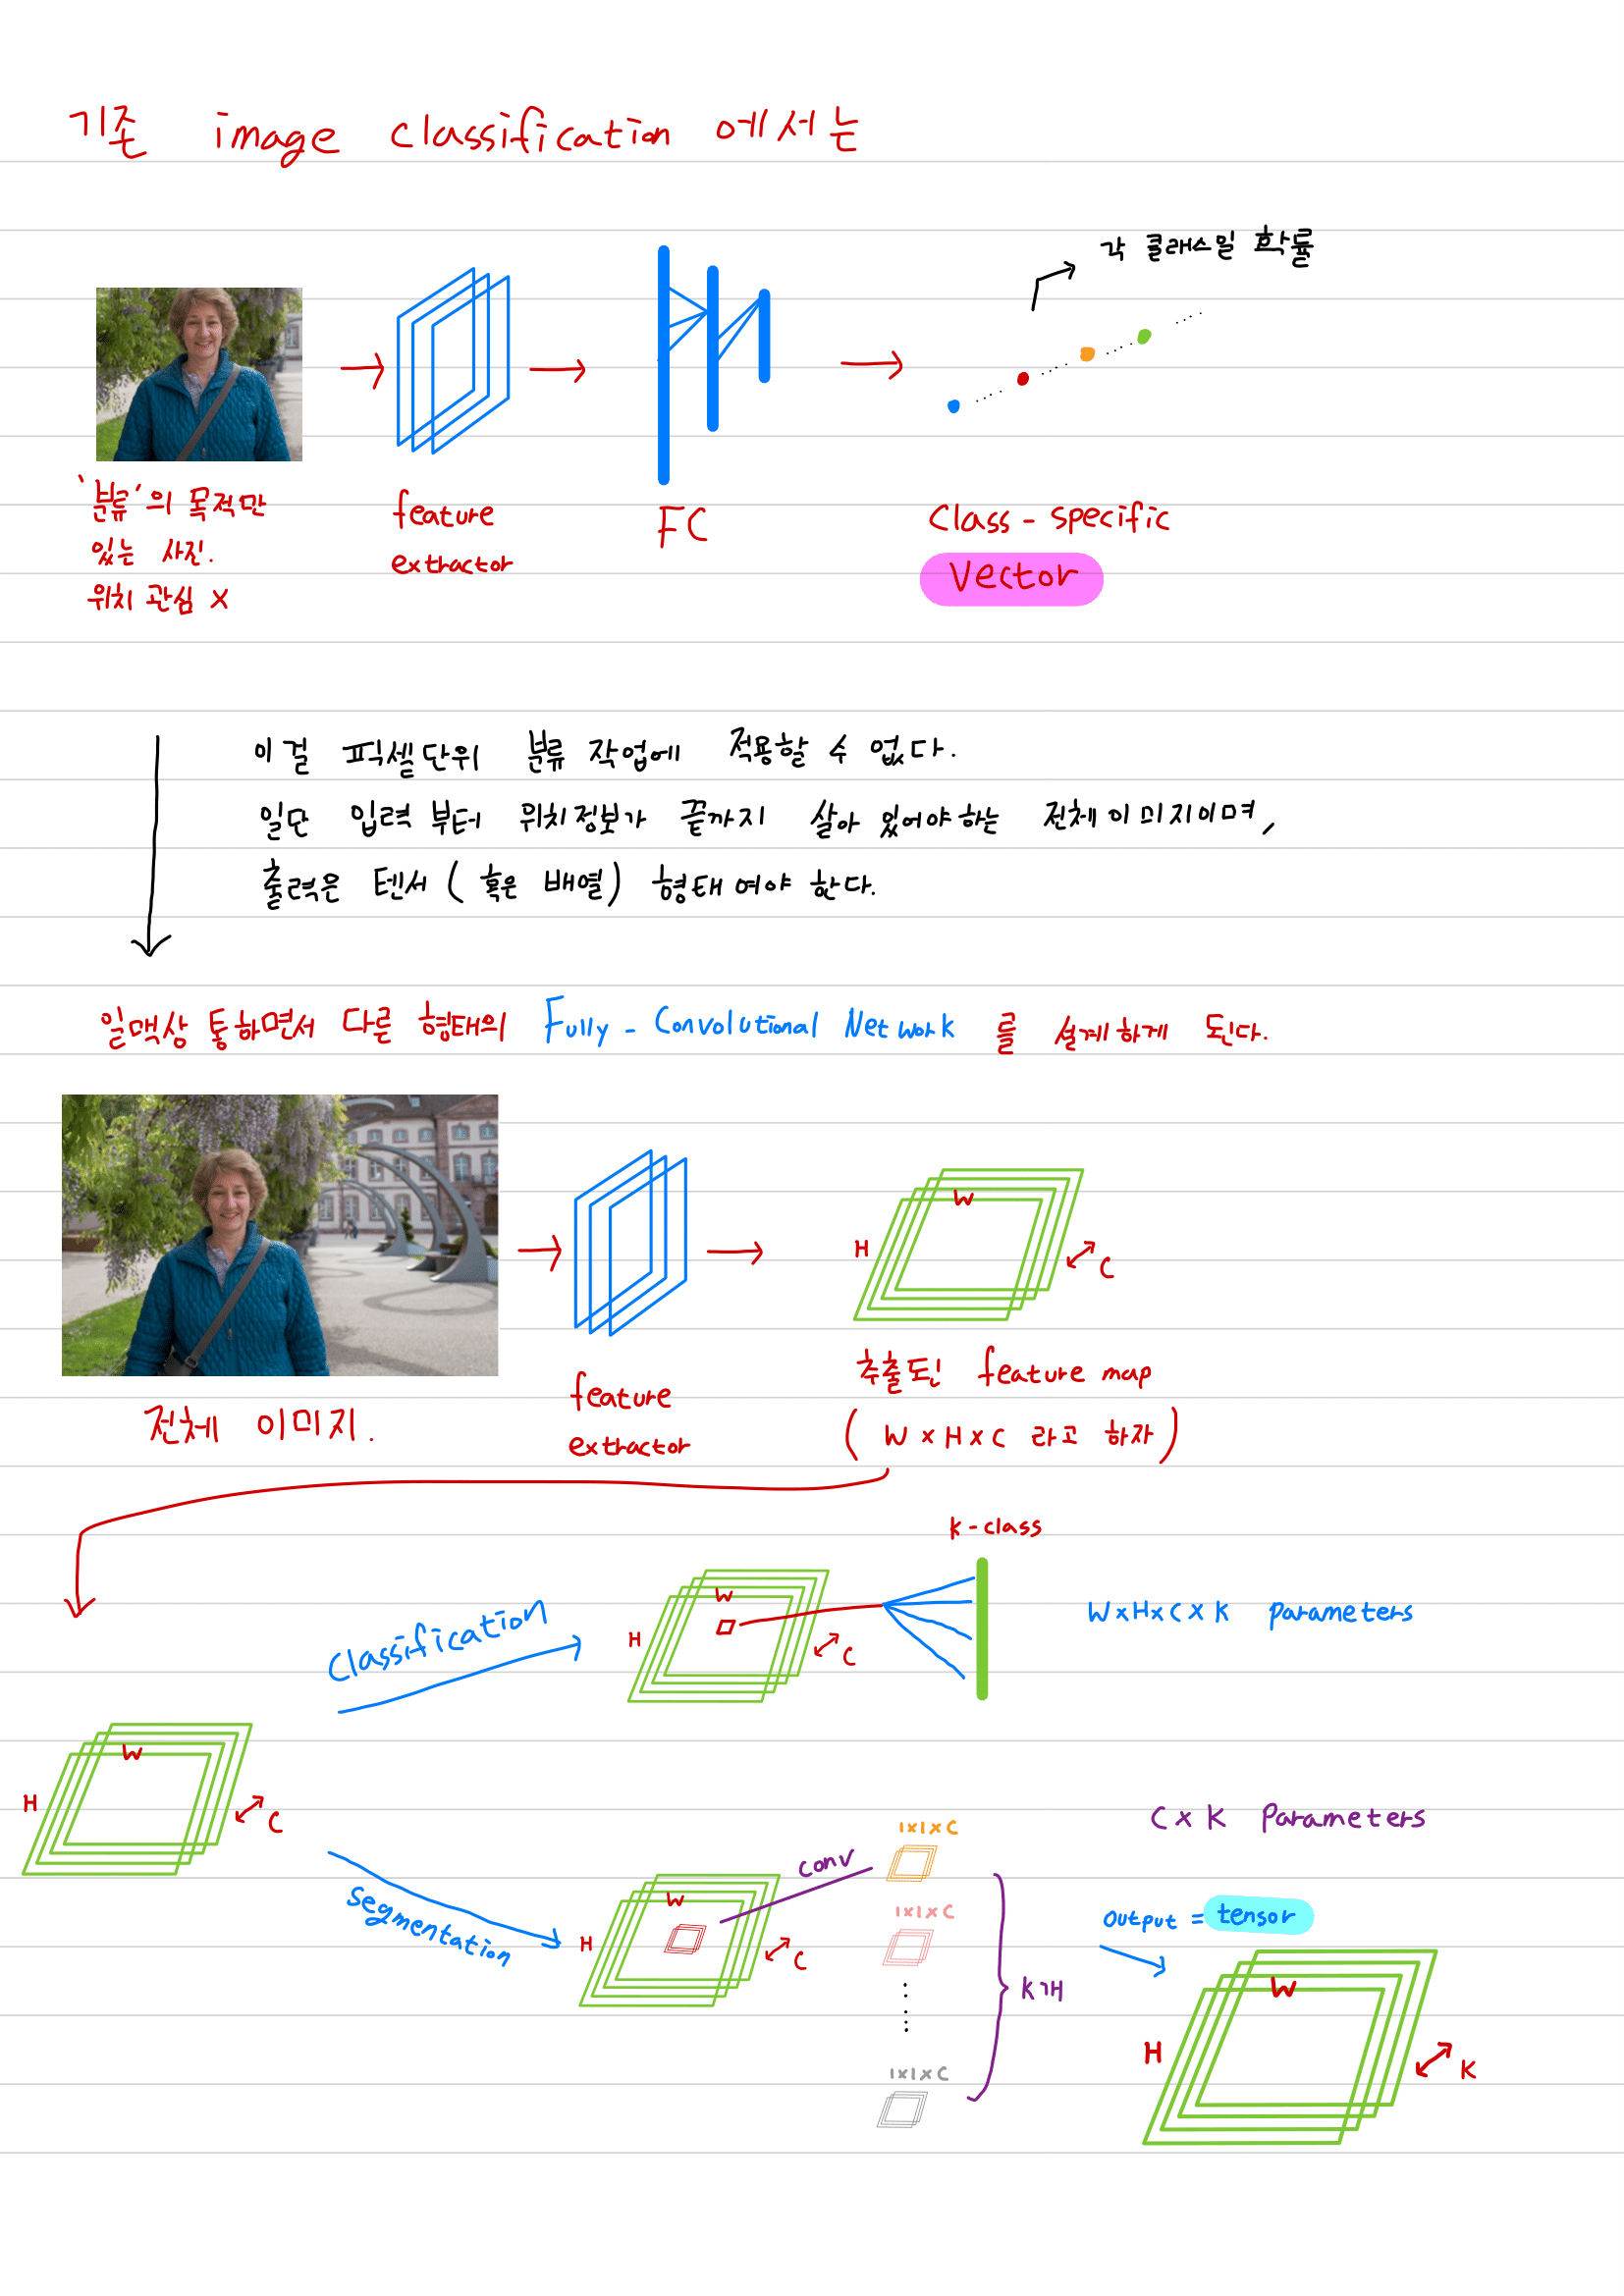 기존 image classification 에서는
각 클래스밀 확률
'분류'의 목적만
있는 사진.
위치 관심 X
feature
extractor
FC
Class - specific
Vector
이걸 픽셀단위 분류 작업에 적용할 수 없다.
일단 입력 부터 위치정보가 끝까지 살아 있어야하는 전체이미지이며,
출력은 텐서 ( 혹은 배열 ) 형태여야 한다.
일맥상 통하면서 다른 형태의 Fully - Convolutional Network 를 설계하게 된다.
전체 이미지.
feature
extractor
W
H
C
추출된 feature map
( W x H x C 라고 하자 )
Classification
W
H
C
K-class
W x H x C x K parameters
W
H
C
Segmentation
W
H
C
conv
1x1xC
1x1xC
1x1xC
K개
C x K Parameters
output = tensor
W
H
K